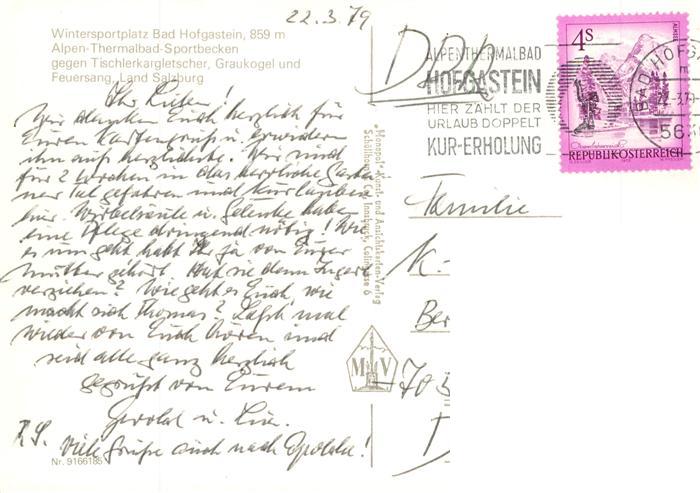 22.3.79
Wintersportplatz Bad Hofgastein, 859 m
Alpen-Thermalbad-Sportbecken
gegen Tischlerkargletscher, Graukogel und
Feuersang, Land Salzburg
Ihr Lieben!
Wir danken Euch herzlich für
Euren Kartengruß u. erwidern
ihn auf herzlichste. Wir sind
für 2 Wochen in das herrliche Gastei-
ner Tal gefahren und
hier. Wirbelsäule u. Gelenke haben
eine Pflege dringend nötig! Wie
es uns geht habt Ihr ja von Eurer
Mutter gehört. Hat sie denn
verziehen? Wie geht es Euch, wie
macht sich Thomas? Laßt mal
wieder von Euch hören und
seid alle ganz herzlich
gegrüßt von Euren
u.
P.S. Viele Grüße auch nach
Nr. 9166185
Monopol-Kunst- und Ansichtskarten-Verlag
Schöllhorn & Co., Innsbruck, Colingasse 6
M V
DDR
ALPENTHERMALBAD
HOFGASTEIN
HIER ZÄHLT DER
URLAUB DOPPELT
KUR-ERHOLUNG
4S
ALMSEE
REPUBLIK ÖSTERREICH
BAD HOFGA
563
Familie
K.
Ber
703